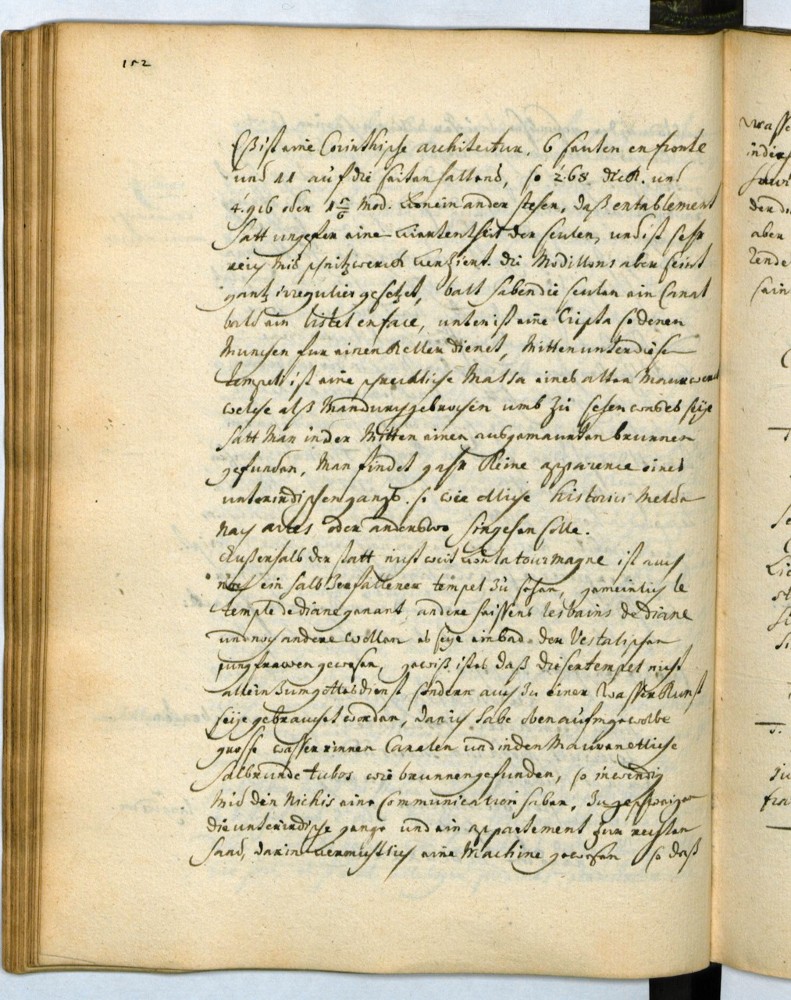 152
Eß ist eine Corinthische architectur, 6 seulen en fronte
und 11 auf die seiten haltend, so 2.68. dick. und
4.916 oder 1 5/6 Mod. von einander stehen, daß entablement
hatt ungefer eine viertentheil der seulen, und ist sehr
reich mit schnitzwerck verziert. die Modillons aber seint
gantz irregulier gesetzet, balt haben die seulen ein Canal
balt ein listel en face, unten ist eine Cripta so denen
Munchen fur einen Keller dienet, Mitten unter diesem
tempel ist eine schreckliche Massa eines alten Maurwerck
welche alß Man durchgebrochen umb zu sehen waß es seye
hatt Man in der Mitten einen ausgemaurten brunnen
gefunden, Man findet gahr Keine apparence eines
unterirdischen gangs. so wie etliche historici Melden
nach arles oder anderswo hingehen solle.
Außerhalb der statt nicht weit von la tour magne ist auch
noch ein halb Zerfallener tempel zu sehen, gemeinlich le
temple de diane genant, andere heissens les bains de diane
und noch andere wollen es seye ein bad der Vestalischen
jungfrawen gewesen, gewiß ist es daß dieser tempel nicht
allein zum gottesdienst sondern auch zu einer Wasser Kunst
seye gebrauchet worden, dan ich habe oben auf m gewolbe
grosse wasser rinnen Canalen und in den Mauren etliche
halbrunde tubos wie brunnen gefunden, so inwendig
Mit den Nichis eine Communication haben, Zu geschweigen
die unterirdische gange und ein appartement zur rechten
hand, darin vermuthlich eine Machine gewesen so daß